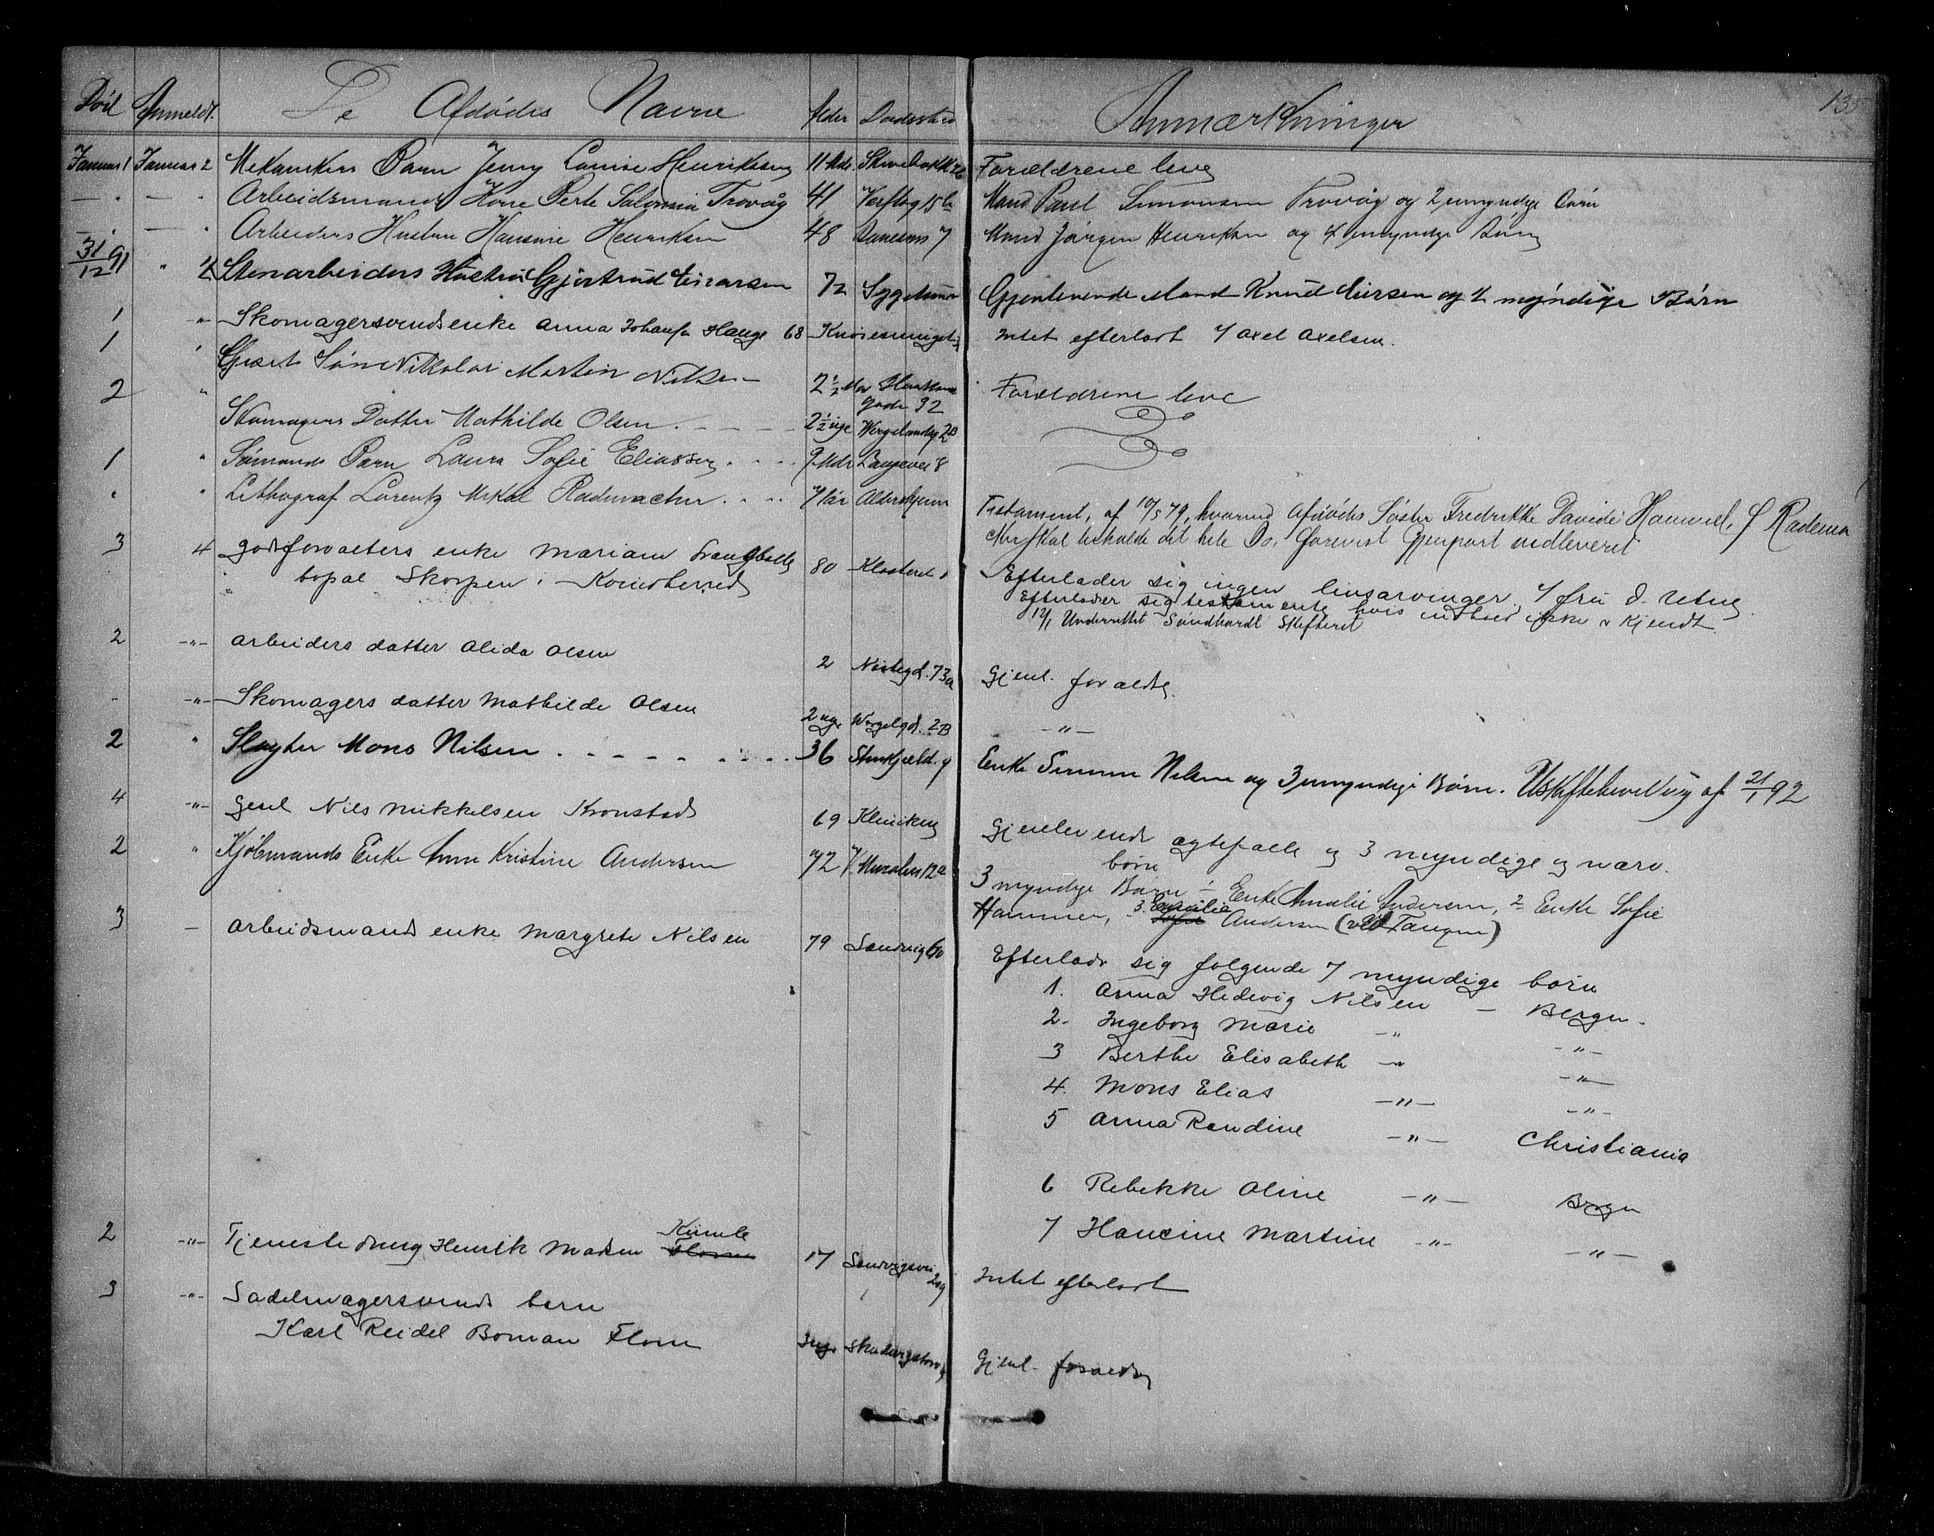 Död Anmeldt. De Afdödes Navne Alder Dødssted Anmærkninger 135
Januar 1 Januar 2 Mekanikers Barn Jenny Louise Henriksen 11 Mdr. Forældrene leve
Arbeidsmands Kone Berte Salomia Trovåg 41 Verftsg 15 b Mand Paul Simonsen Trovåg og 2 umyndige Børn
Arbeiders Hustru Hansine Henriksen 48 7 Mand Jørgen Henriksen og 4 umyndge Børn
31/12 91 " 2 Stenarbeiders Hustru Gjertrud Einarsen 72 Sygehuset Gjenlevende Mand Knud Eirsen og 2 myndige Børn
1 " Skomagersvends enke Anna Johansa Hauge 68 Intet efterladt / Axel Axelsen.
1 " Gjært Søn Nikolai Martin Nilsen 2 1/2 Mdr
2 " gade 32 Forældrene leve
Skomagers Datter Mathilde Olsen. 2 1/2 uge Wergelandsg 2B
1 " Sømands Barn Laura Sofie Eliassen 9 Mdr 8
" " Lithograf Lorentz Mikal Rademacher 71 år Aldershjem Testament, af 10/5 79, hvorved Afdødes Søster Fredrikke Davidé Hammel, f Radema
cher skal beholde det hele Bo, Gjenpart medleveret
3 4 godsforvalters enke Mariane 80 Klosteret Efterlader sig ingen livsarvinger, / fru D. Utne
" bopal Skorpen i Kvindherred Efterlader sig testamente hvis indhold ikke er kjendt
12/1 Underrettet Sundhordl Skifteret
2 -"- arbeiders datter Alida Olsen 2 Nøstegd. 73a Gjenl. forældre.
-"- Skomagers datter Mathilde Olsen 2 uge Wergelgd. 2B -"-
2 " Slagter Mons Nilsen 36 Stenkjelld. 9 Enke Nilsen og 3 umyndige Børn. Uskiftebevilling af 21/1 92
4 -"- Gesel Nils Mikkelsen Kronstad 69 Kleniken Gjenlevende ægtefælle og 3 myndige og nærv.
børn
2 " Kjøbmands Enke Anne Kristine Andersen 72 12a 3 myndige Børn 1 Enke Amalie Andersen, 2 Enke Sofie
Hammer, 3. Emilie Sofie Andersen (
3 - arbeidsmands enke Margrete Nilsen 79 Sandvig 60 Efterlader sig følgende 7 myndige børn
1. Anna Hedevig Nilsen - Bergen.
2. Ingeborg Marie -"- -"-
3 Berthe Elisabeth -"- -"-
4. Mons Elias -"- -"-
5 Anna Randine -"- Christiania
6 Rebekke Oline -"- Bergen
7 Hansine Martine -"- -"-
2 -"- Tjenestedreng Henrik Madsen Kumle 17 Sandvigsvei Intet efterladt
3 -"- Sadelmagersvends barn
Karl Reidel Boman Flom Gjenl. forældre